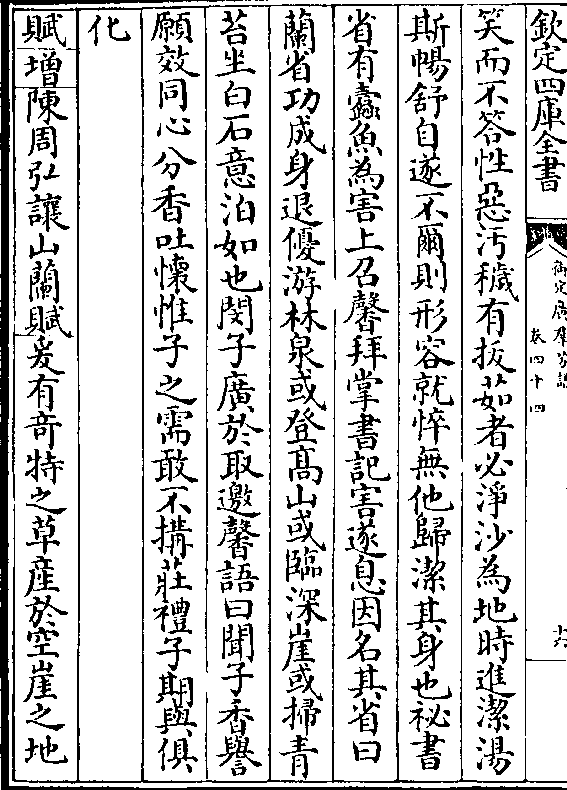 欽定四庫全書
御定廣羣芳譜
卷四十四
十六
笑而不答性惡汚穢有拔茹者必淨沙為地時進潔湯
斯暢舒自遂不爾則形容就悴無他歸潔其身也祕書
省有蠧魚為害上召馨拜掌書記害遂息因名其省曰
蘭省功成身退優游林泉或登髙山或臨深崖或掃青
苔坐白石意泊如也閔子廣於取邀馨語曰聞子香譽
願效同心分香吐懷惟子之需敢不搆莊禮子期與俱
化
賦增陳周弘讓山蘭賦爰有竒特之草産於空崖之地